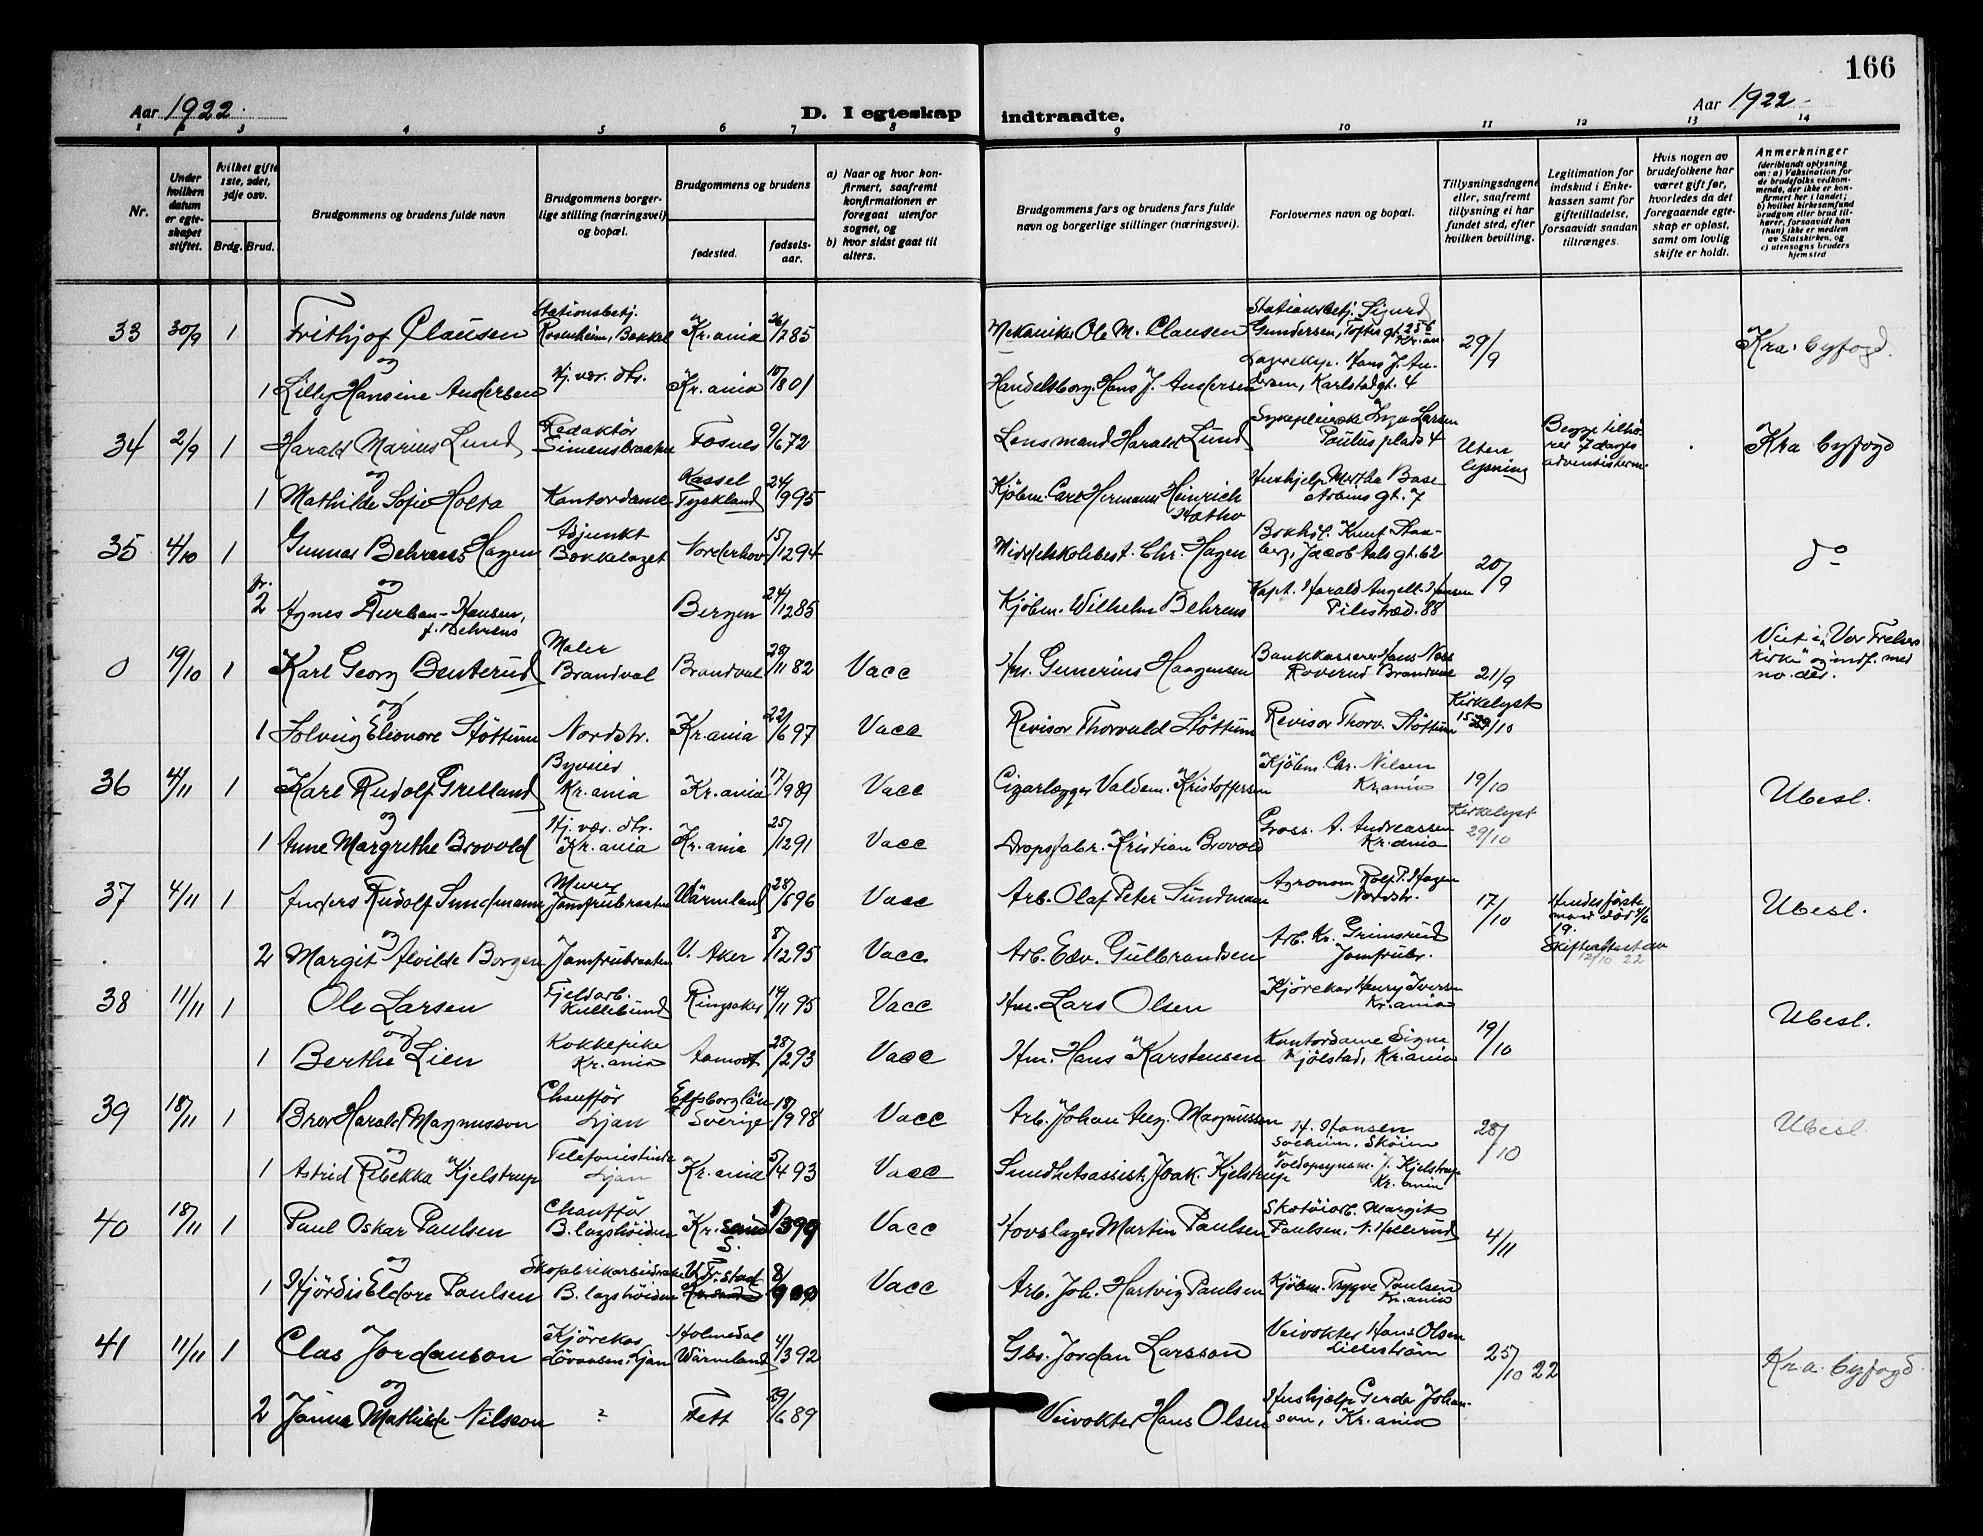 166
Aar 1922.
D. I egteskap indtraadte.
Aar 1922
1 2 3 4 5 6 7 8 9 10 11 12 13 14
Nr.
Under hvilken datum er egteskapet stiftet.
Hvilket gifte 1ste, 2det, 3dje osv.
Brdg. Brud.
Brudgommens og brudens fulde navn
Brudgommens borgerlige stilling (næringsvei) og bopæl.
Brudgommens og brudens
fødested.
fødselsaar.
a) Naar og hvor konfirmert, saafremt konfirmationen er foregaat utenfor sognet, og
b) hvor sidst gaat til alters.
Brudgommens fars og brudens fars fulde navn og borgerlige stillinger (næringsvei).
Forlovernes navn og bopæl.
Tillysningsdagene eller, saafremt tillysning ei har fundet sted, efter hvilken bevilling.
Legitimation for indskud i Enkekassen samt for giftetilladelse, forsaavidt saadan tiltrænges.
Hvis nogen av brudefolkene har været gift før, hvorledes da det foregaaende egteskap er opløst, samt om lovlig skifte er holdt.
Anmerkninger
(deriblandt oplysning om: a) Vaksination for de brudefolks vedkommende, der ikke er konfirmert her i landet; b) hvilket kirkesamfund brudgom eller brud tilhører, forsaavidt han (hun) ikke er medlem av Statskirken, og c) utensogns bruders hjemsted
33 30/9 1 Frithjof Clausen Stationsbetj. Rosenheim, Bakkel Kr.ania 26/7 85 Mekaniker Ole M. Clausen Stationsbetj. Sigurd Gundersen, Toftesgt. 25 b Kr.an 29/9 Kra. byfogd.
og
1 Lilly Hansine Andersen Hj. vær. dtr. Kr.ania 10/8 01 Handelsborg. Hans J. Andersen Lagereksp. Hans J. Andersen, Karlstadgt. 4
34 2/9 1 Harald Marius Lund Redaktør Simensbraaten Fosnes 9/6 72 Lensmand Harald Lund Sykepleierske Inga Larsen Paulus plads 4 Uten lysning Begge tilhører 7 dages adventisterne. Kra byfogd
og
1 Mathilde Sofie Holta Kontordame Kassel Tyskland 24/9 95 Kjøbm. Carl Hermann Heinrich Hushjelp Martha Base gt. 7
35 4/10 1 Gunnar Behrens Hagen Adjunkt Bækkelaget Norderhov 15/12 94 Middelskolebest. Chr. Hagen Bokhol. Knut Staaberg, Jacob Aals gt. 62 20/9 do
og
fr. 2 Agnes Durban-Hansen, f. Behrens Bergen 24/12 85 Kjøbm. Wilhelm Behrens Kapt. Harald Angell-Hansen Pilestræd. 88
0 19/10 1 Karl Georg Benterud Maler Brandval Brandval 28/11 82 Vacc Hm. Gunerius Haagensen Bankkasserer Hans Næss Roverud Brandval 21/9 Viet i "Vor Frelsers Kirke" og indf. med no. der.
og
1 Solveig Elionore Støttum Nordstr. Kr.ania 22/6 97 Vacc Revisor Thorvald Støttum Revisor Thorv. Støttum Kirkelyst 15-29/10
36 4/11 1 Karl Rudolf Grelland Byvsied Kr.ania Kr.ania 17/9 89 Vacc Cigarlægger Valdem. Kristoffersen Kjøbm. Chr. Nilsen Kr.ania 19/10 Ubesl.
og
1 Anne Margrethe Brovold Hj. vær. dtr. Kr.ania Kr.ania 25/12 91 Vacc Dropsfabr. Kristian Brovold Gross. A. Andreassen Kr.ania Kirkelyst 29/10
37 4/11 1 Anders Rudolf Sundmann Murer Jomfrubraaten Wärmland 28/6 96 Vacc Arb. Olaf Peter Sundman Agronom Rolf P. Hagen Nordstr. 17/10 Hendes første mand død 4/6 19. Skifteattest av 12/10 22 Ubesl.
og
2 Margit Alvilde Borgen Jomfrubraaten V. Aker 8/12 95 Vacc Arb. Edv. Gulbrandsen Arb. Kr. Grimsrud Jomfrubr.
38 11/11 1 Ole Larsen Fjeldarb. Kullebund Ringsaker 14/11 95 Vacc Hm. Lars Olsen Kjørekar Henry Iversen Kr.ania 19/10 Ubesl.
og
1 Berthe Lien Kokkepike Kr.ania Aamodt 28/2 93 Vacc Hm. Hans Karstensen Kontordame Signe Kjølstad, Kr.ania
39 18/11 1 Bror Harald Magnusson Chauffør Ljan Elfsborg län Sverige 18/9 98 Vacc Arb. Johan Aug. Magnussen H. Hansen Solheim, Skøien 28/10 Ubesl.
og
1 Astrid Rebekka Kjelstrup Telefonistinde Ljan Kr.ania 5/4 93 Vacc Sundhetsassist. Joak. Kjelstrup Toldopsynsm. J. Kjelstrup Kr.ania
40 18/11 1 Paul Oskar Paulsen Chauffør B.lagshøiden Kr.sand S. 1/3 99 Vacc Hovslager Martin Paulsen Skotøiarb. Margit Paulsen, N. Hellerud 4/11
og
1 Hjördis Eldore Paulsen Skofabrikarbeiderske B.lagshøiden Fr.stad 8/9 00 Vacc Arb. Joh. Hartvig Paulsen Kjøbm. Trygve Paulsen Kr.ania
41 11/11 1 Clas Jordanson Kjørekar Løvaasen, Ljan Holmedal Wärmland 4/3 92 Gbr. Jordan Larsson Veivokter Hans Olsen Lillestrøm 25/10 22 Kr.a. byfogd.
og
2 Janna Mathilde Nilsson ? Fett 29/6 89 Veivokter Hans Olsen Hushjælp Gerda Johanson, Kr.ania